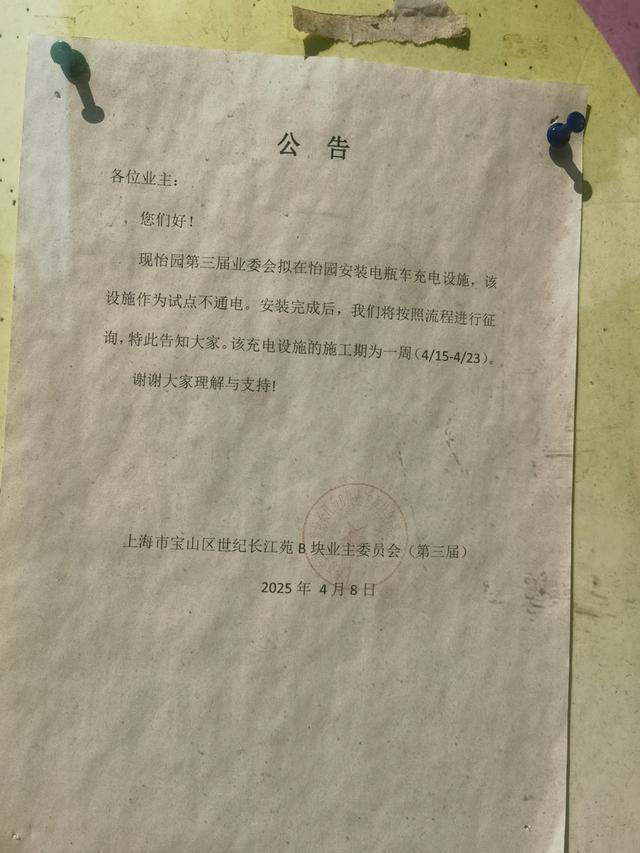 公 告
各位业主：
您们好！
现怡园第三届业委会拟在怡园安装电瓶车充电设施，该
设施作为试点不通电。安装完成后，我们将按照流程进行征
询，特此告知大家。该充电设施的施工期为一周（4/15-4/23）。
谢谢大家理解与支持!
上海市宝山区世纪长江苑 B 块业主委员会（第三届）
2025 年 4 月 8 日